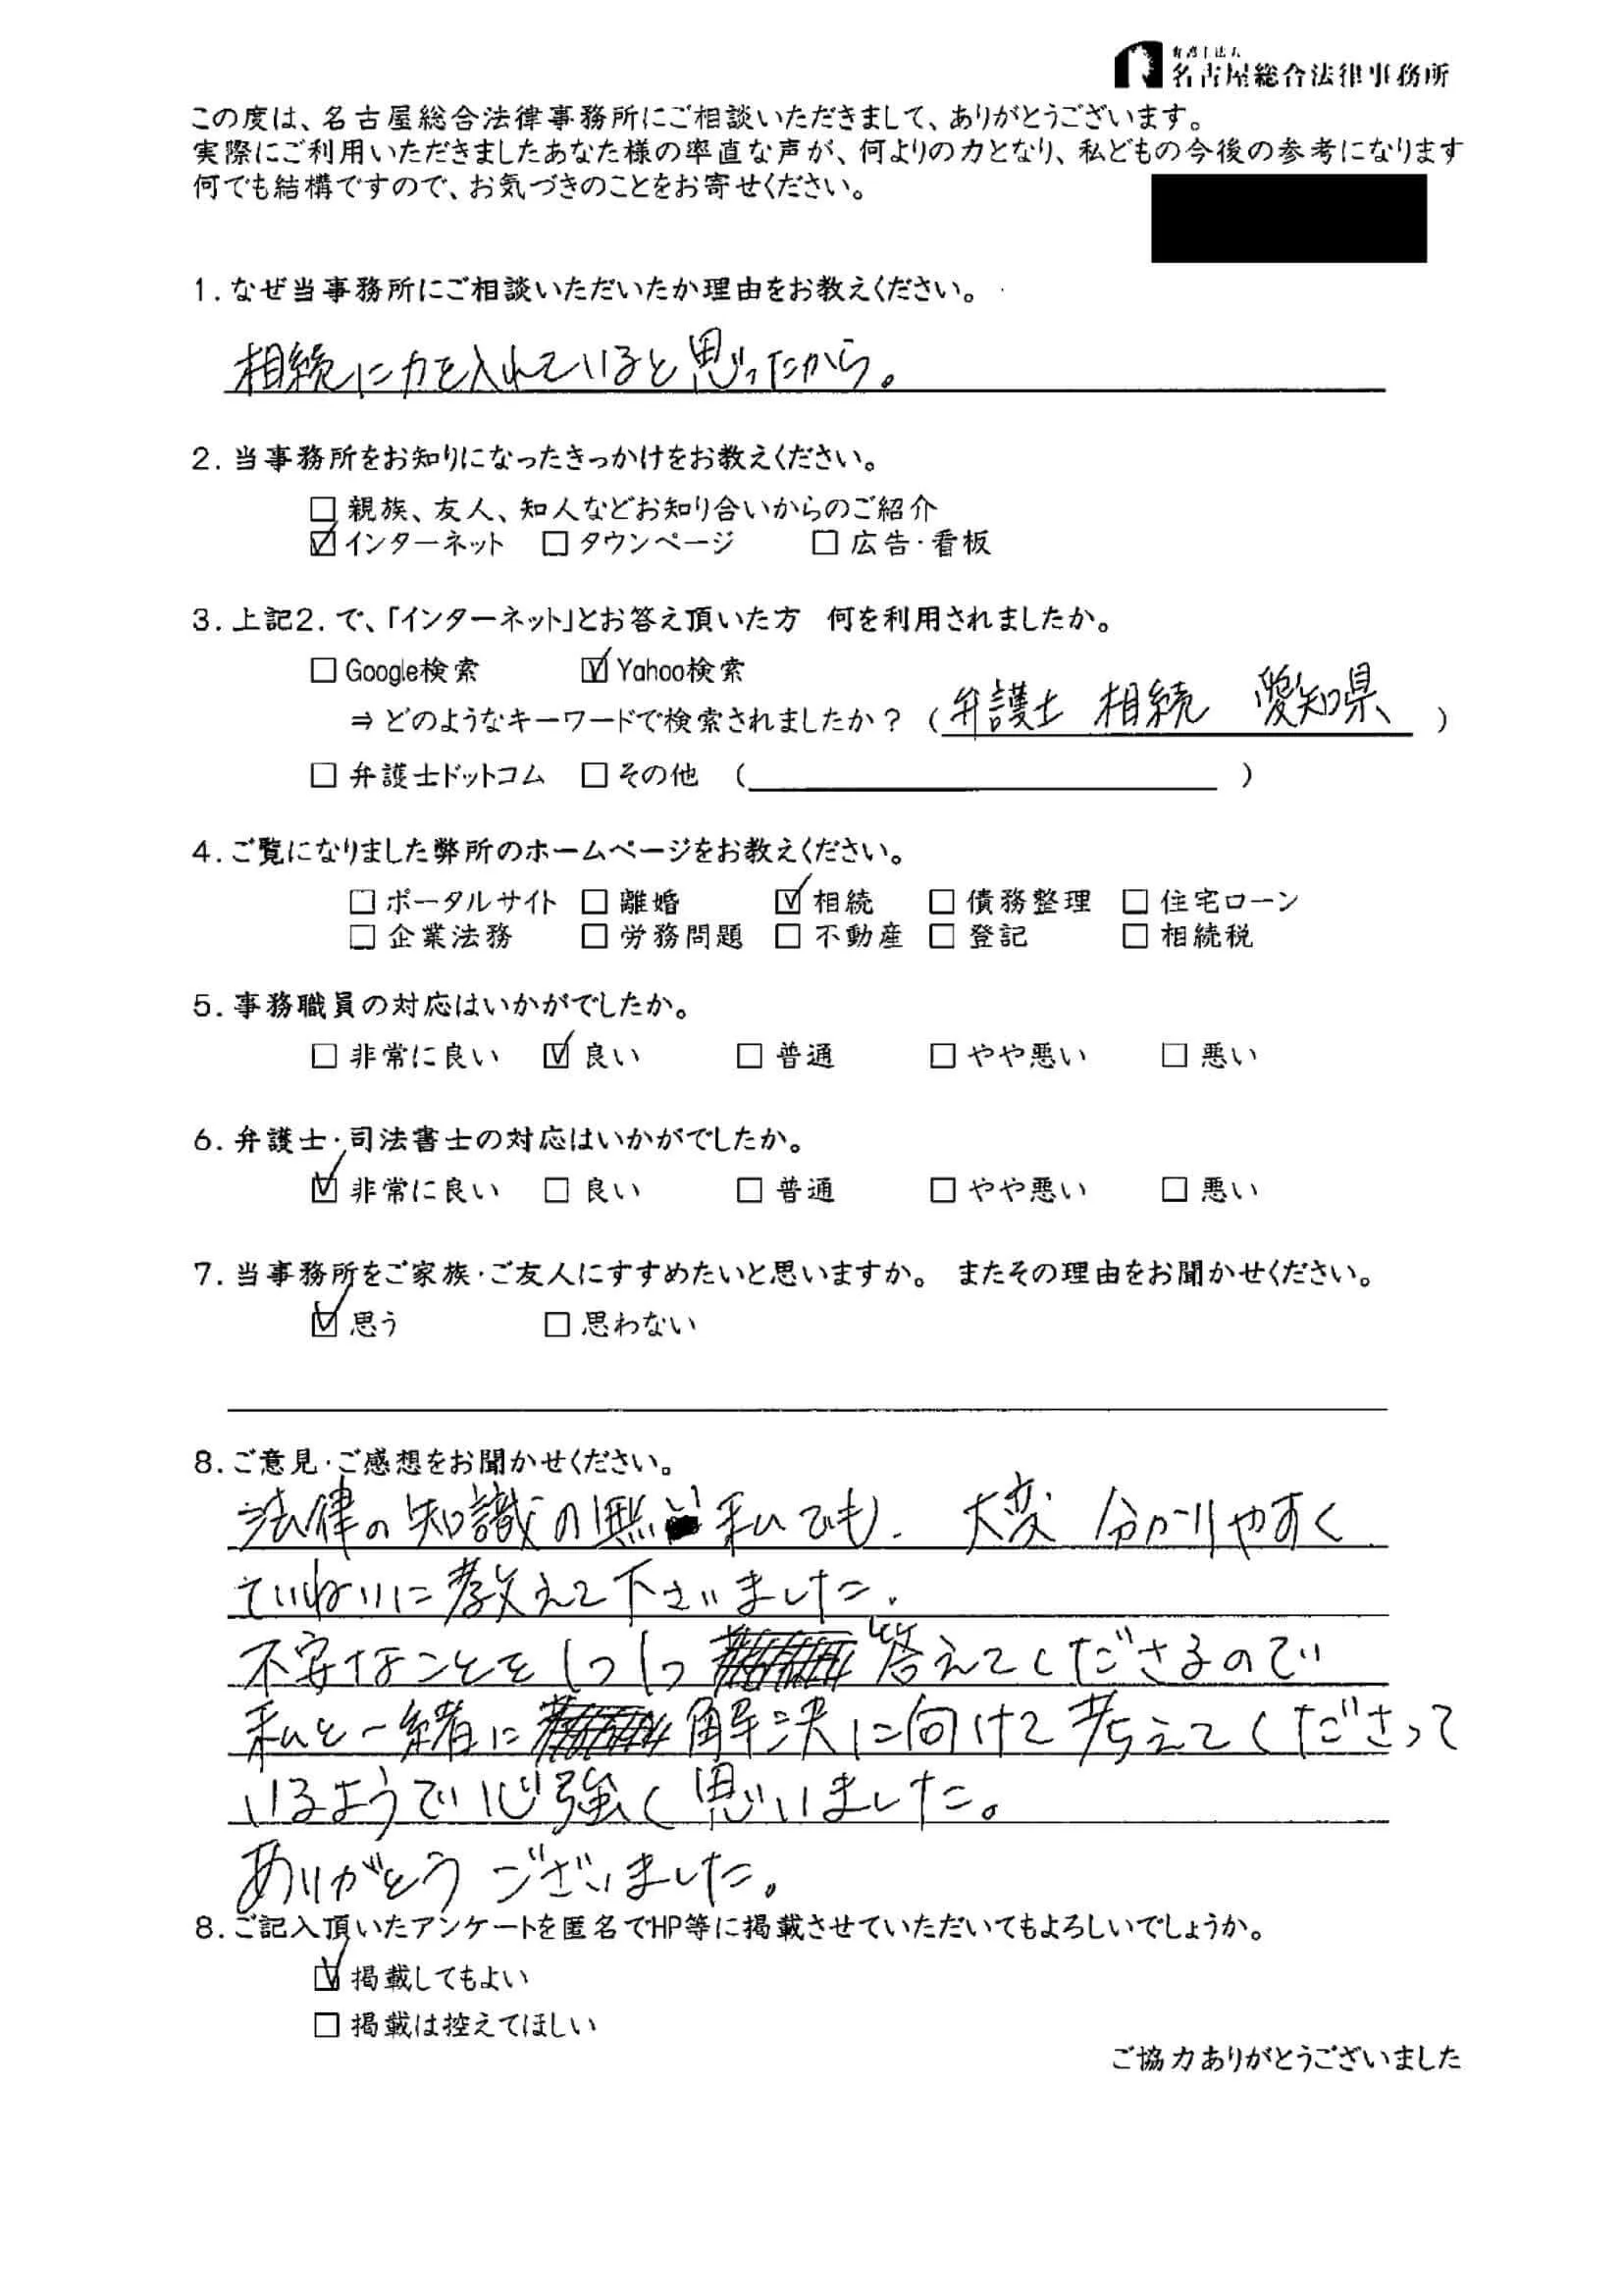 弁護士法人
名古屋総合法律事務所
この度は、名古屋総合法律事務所にご相談いただきまして、ありがとうございます。
実際にご利用いただきましたあなた様の率直な声が、何よりの力となり、私どもの今後の参考になります
何でも結構ですので、お気づきのことをお寄せください。
1. なぜ当事務所にご相談いただいたか理由をお教えください。
相続に力を入れていると思ったから。
2. 当事務所をお知りになったきっかけをお教えください。
□ 親族、友人、知人などお知り合いからのご紹介
☑ インターネット □ タウンページ □ 広告・看板
3. 上記2. で、「インターネット」とお答え頂いた方 何を利用されましたか。
□ Google検索 ☑ Yahoo検索
⇒ どのようなキーワードで検索されましたか？ (弁護士 相続 愛知県)
□ 弁護士ドットコム □ その他 ( )
4. ご覧になりました弊所のホームページをお教えください。
□ ポータルサイト □ 離婚 ☑ 相続 □ 債務整理 □ 住宅ローン
□ 企業法務 □ 労務問題 □ 不動産 □ 登記 □ 相続税
5. 事務職員の対応はいかがでしたか。
□ 非常に良い ☑ 良い □ 普通 □ やや悪い □ 悪い
6. 弁護士・司法書士の対応はいかがでしたか。
☑ 非常に良い □ 良い □ 普通 □ やや悪い □ 悪い
7. 当事務所をご家族・ご友人にすすめたいと思いますか。 またその理由をお聞かせください。
☑ 思う □ 思わない
8. ご意見・ご感想をお聞かせください。
法律の知識の無い私でも、大変 分かりやすく
ていねいに教えて下さいました。
不安なことを1つ1つ 答えてくださるので
私と一緒に 解決に向けて考えてくださって
いるようで心強く思いました。
ありがとうございました。
8. ご記入頂いたアンケートを匿名でHP等に掲載させていただいてもよろしいでしょうか。
☑ 掲載してもよい
□ 掲載は控えてほしい
ご協力ありがとうございました